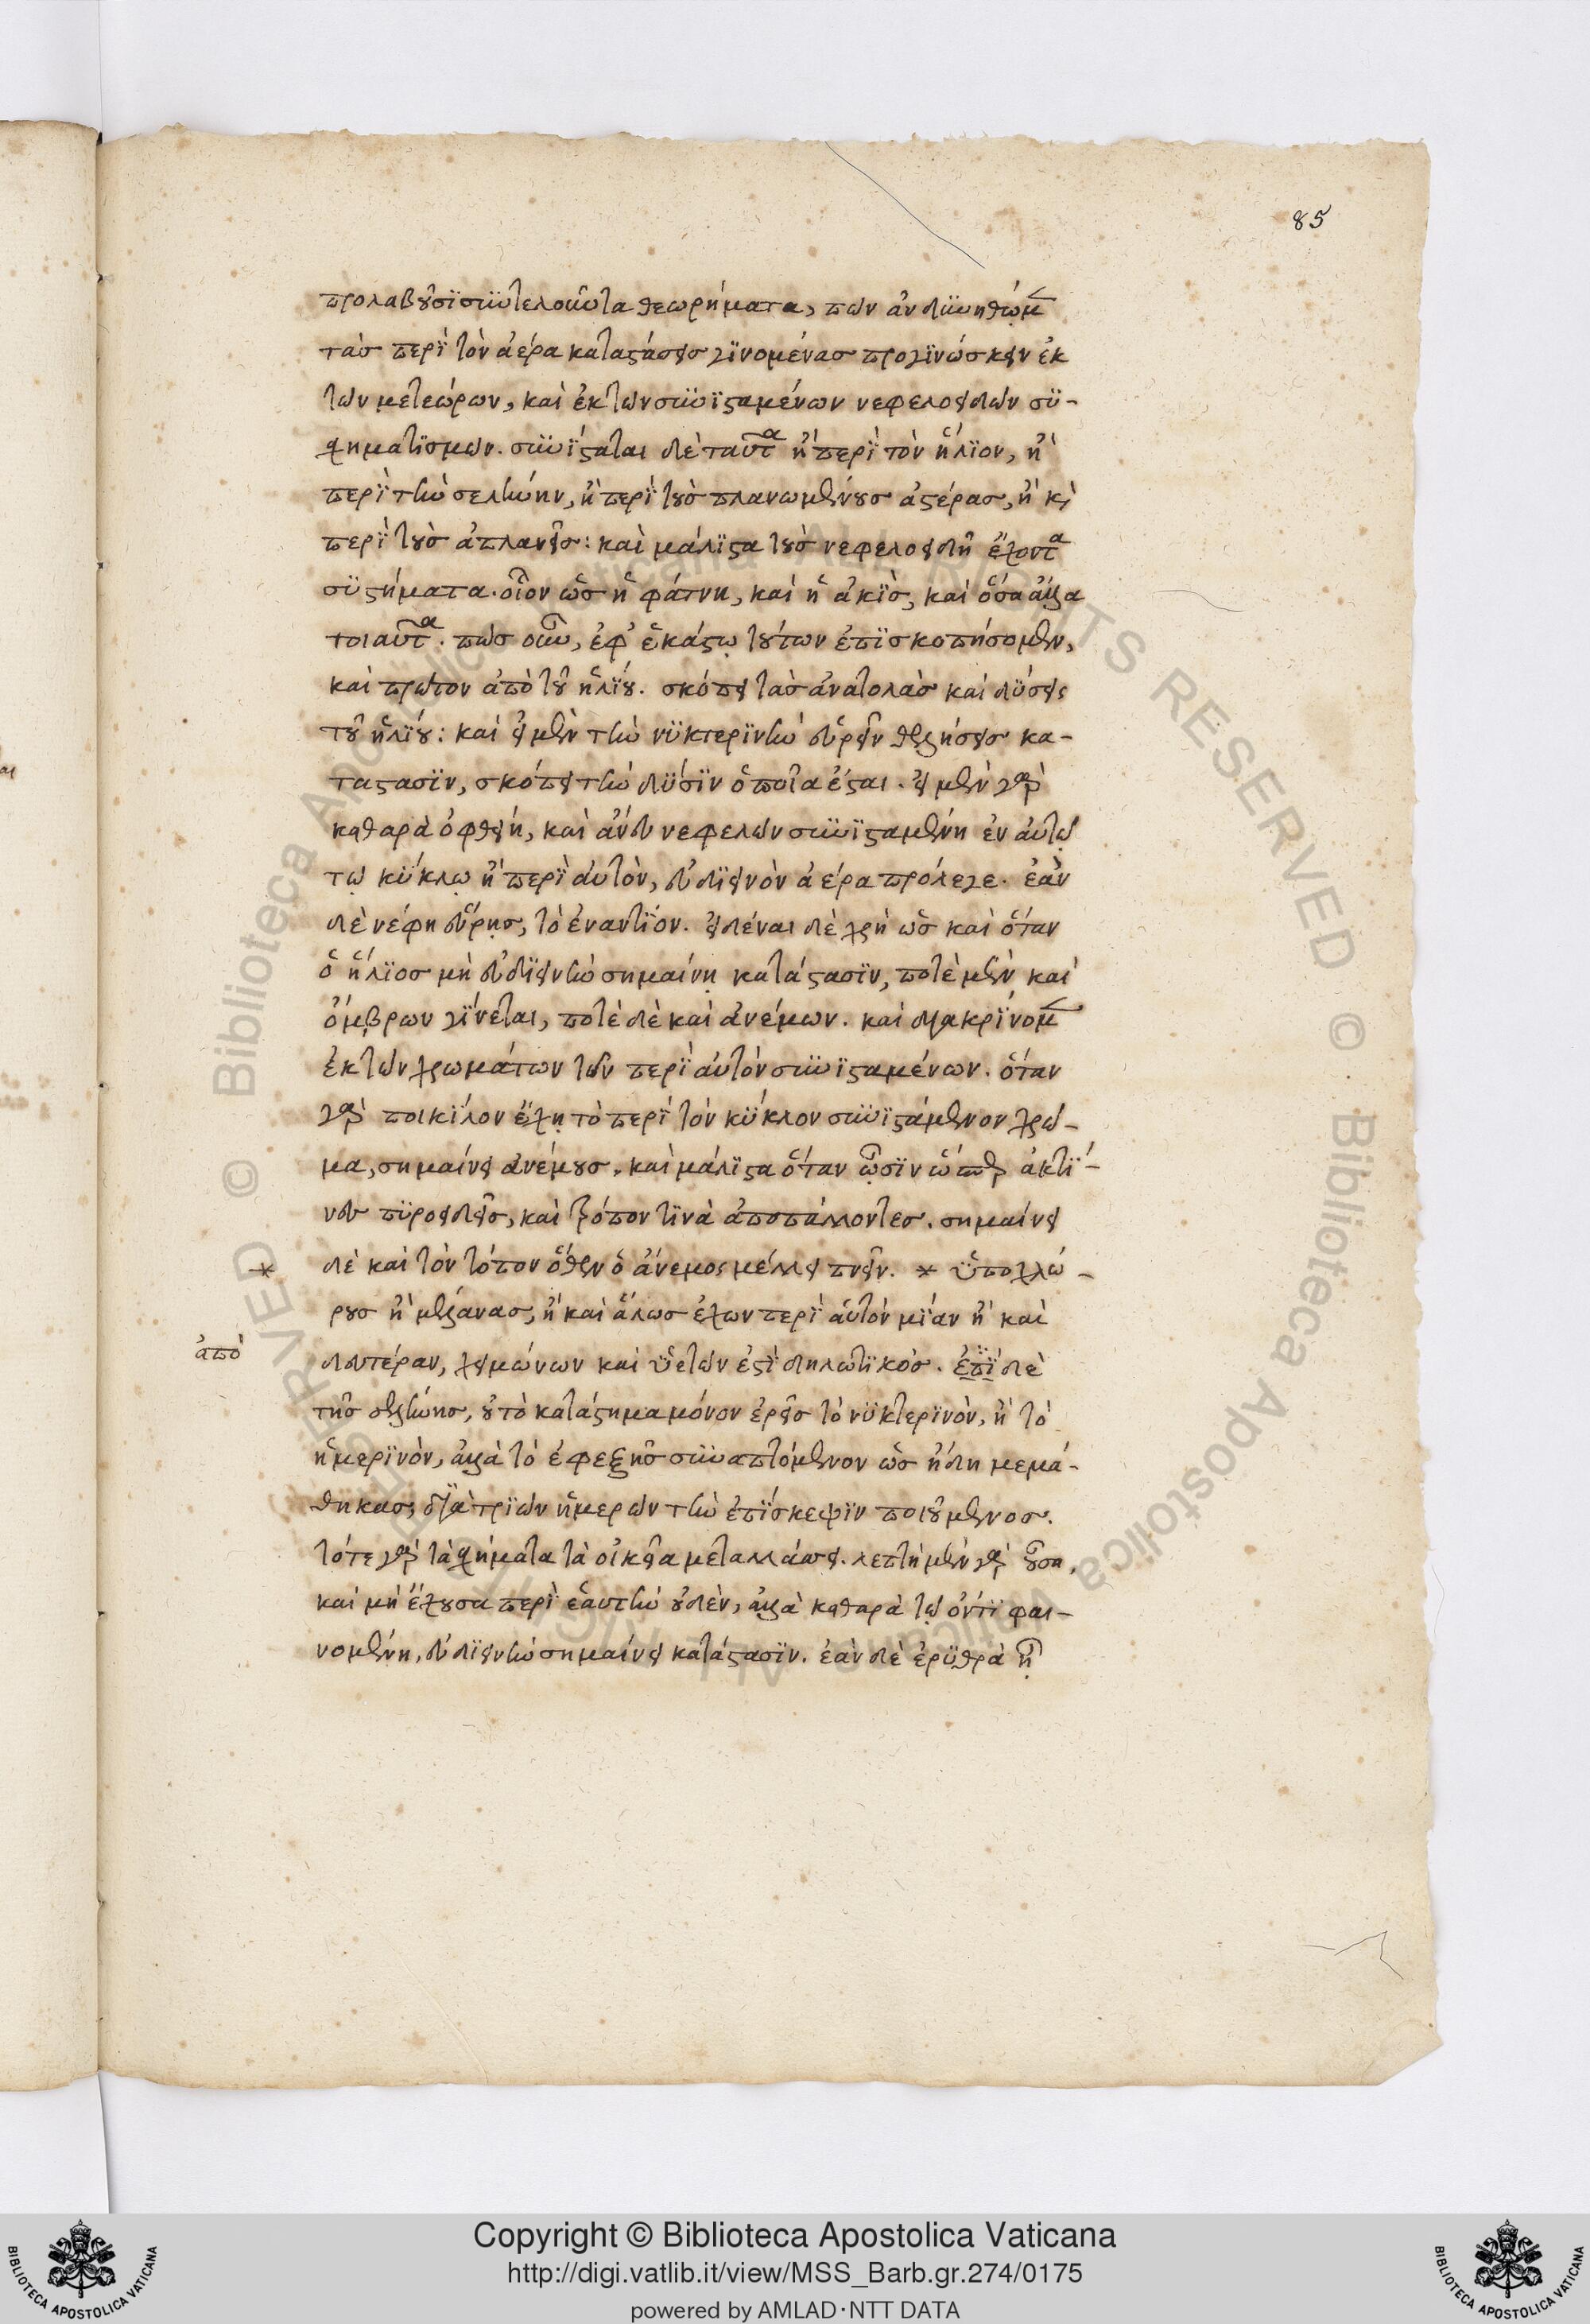 85
προλαβοῦσι συντελοῦντα θεωρήματα, πῶν ἂν δυνηθῶμ
τὰσ περὶ τὸν ἀέρα καταστάσεισ γινομένασ προγινώσκειν ἐκ
τῶν μετεώρων, καὶ ἐκ τῶν συνισταμένων νεφελοειδῶν συ-
σχηματισμων. συνίσταται δὲ ταῦτα ἢ περὶ τὸν ἥλιον, ἢ
περὶ τὴν σελήνην, ἢ περὶ τοὺσ πλανωμένουσ ἀστέρασ, ἢ κὶ
περὶ τοὺσ ἀπλανεῖσ: καὶ μάλιστα τοὺσ νεφελοειδῆ ἔχοντα
συστήματα. οἷον ὡσ ἡ φάτνη, καὶ ἡ ἀκὶσ, καὶ ὅσα ἄλλα
τοιαῦτα. πῶσ οὖν, ἐφ' ἑκάστῳ τούτων ἐπισκοπήσομεν,
καὶ πρῶτον ἀπὸ τοῦ ἡλίου. σκόπει τὰσ ἀνατολὰσ καὶ δύσεις
τοῦ ἡλίου: καὶ εἰ μὲν τὴν νυκτερινὴν εὑρεῖν θελήσεισ κα-
τάστασιν, σκόπει τὴν δύσιν ὁποῖα ἔσται. εἰ μὲν γὰρ
καθαρὰ ὀφθείη, καὶ ἄνευ νεφελῶν συνισταμένη ἐν αὐτῷ
τω κύκλῳ ἢ περὶ αὐτὸν, εὐδιεινὸν ἀέρα πρόλεγε. ἐὰν
δὲ νέφη εὕρῃσ, τὸ ἐναντίον. εἰδέναι δὲ χρὴ ὡσ καὶ ὅταν
ὁ ἥλιοσ μὴ εὐδιεινὴν σημαίνῃ κατάστασιν, ποτὲ μὲν καὶ
ὄμβρων γίνεται, ποτὲ δὲ καὶ ἀνέμων. καὶ διακρίνομ
ἐκ τῶν χρωμάτων τῶν περὶ αὐτὸν συνισταμένων. ὅταν
γὰρ ποικίλον ἔχῃ τὸ περὶ τὸν κύκλον συνιστάμενον χρῶ-
μα, σημαίνει ἀνέμουσ. καὶ μάλιστα ὅταν ὦσιν ὥσπερ ἀκτί-
νεσ πυροειδεῖσ, καὶ τρόπον τινὰ ἀποπάλλοντεσ. σημαίνει
* δὲ καὶ τὸν τόπον ὅθεν ὁ ἄνεμος μέλλει πνεῖν. * ὑποχλώ-
ρουσ ἢ μελάνασ, ἢ καὶ ἅλωσ ἔχων περὶ αὑτὸν μίαν ἢ καὶ
ἀπὸ
δευτέραν, χειμώνων καὶ ὑετῶν ἐστὶ δηλωτικόσ. ἐπὶ δὲ
τῆσ σελήνησ, οὐ τὸ κατάστημα μόνον ἐρεῖσ τὸ νυκτερινὸν, ἢ τὸ
ἡμερινὸν, ἀλλὰ τὸ ἐφεξῆσ συναπτόμενον ὡσ ἤδη μεμά-
θηκασ, διὰ τριῶν ἡμερῶν τὴν ἐπίσκεψιν ποιούμενοσ.
τότε γὰρ τὰ σχήματα τὰ οἰκεῖα μεταλλάσσει. λεπτὴ μὲν γὰρ οὖσα,
καὶ μὴ ἔχουσα περὶ ἑαυτὴν οὐδὲν, ἀλλὰ καθαρὰ τῷ ὄντι φαι-
νομένη, εὐδιεινὴν σημαίνει κατάστασιν. ἐὰν δὲ ἐρυθρὰ ᾖ
Copyright © Biblioteca Apostolica Vaticana
http://digi.vatlib.it/view/MSS_Barb.gr.274/0175
powered by AMLAD·NTT DATA